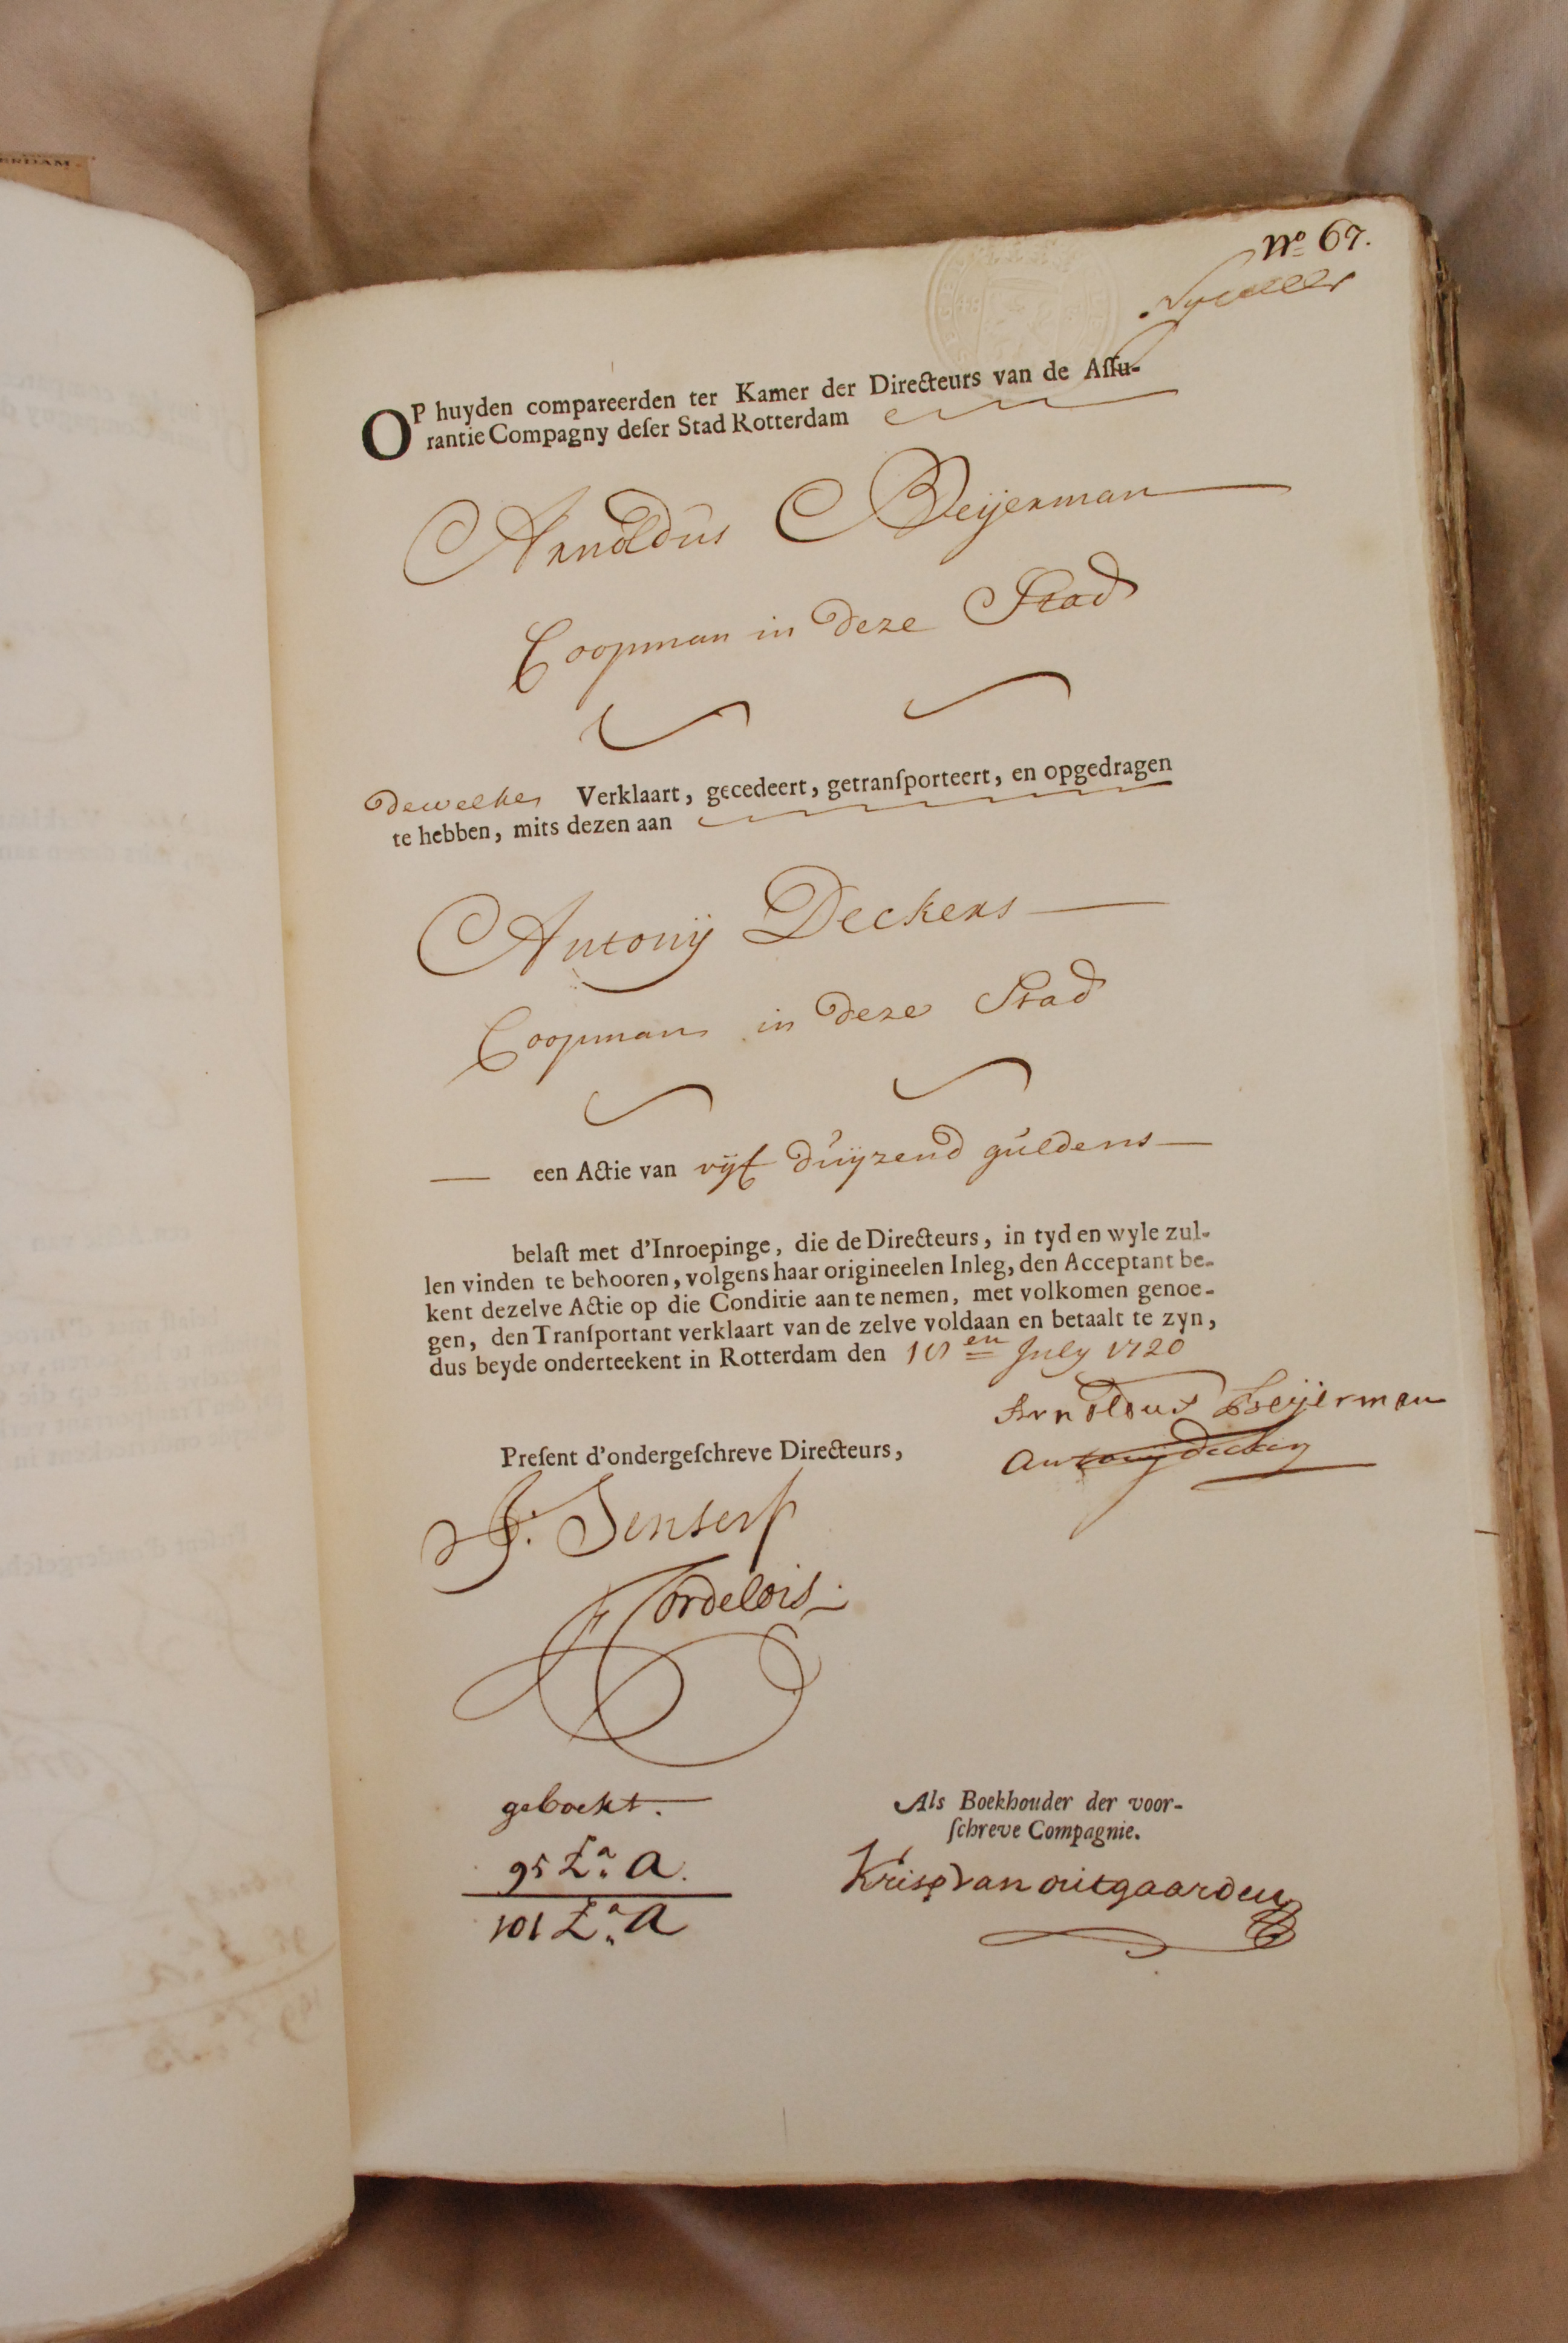 ERDAM
No 67.
OP huyden compareerden ter Kamer der Directeurs van de Aſſu-
rantie Compagny deſer Stad Rotterdam
Arnoldus Beijerman
Coopman in deze Stad
dewelke Verklaart, gecedeert, getranſporteert, en opgedragen
te hebben, mits dezen aan
Antonij Deckers
Coopman in deze Stad
een Actie van vijf duijzend guldens
belaſt met d'Inroepinge, die de Directeurs, in tyd en wyle zul-
len vinden te behooren, volgens haar origineelen Inleg, den Acceptant be-
kent dezelve Actie op die Conditie aan te nemen, met volkomen genoe-
gen, den Tranſportant verklaart van de zelve voldaan en betaalt te zyn,
dus beyde onderteekent in Rotterdam den July 1720
Arnoldus Beijerman
Preſent d'ondergeſchreve Directeurs,
Antonij Deckers
J. Senserf
Cordelois
geboekt.
Als Boekhouder der voor-
ſchreve Compagnie.
95 La. A.
Krisp van outgaarden
101 La. A